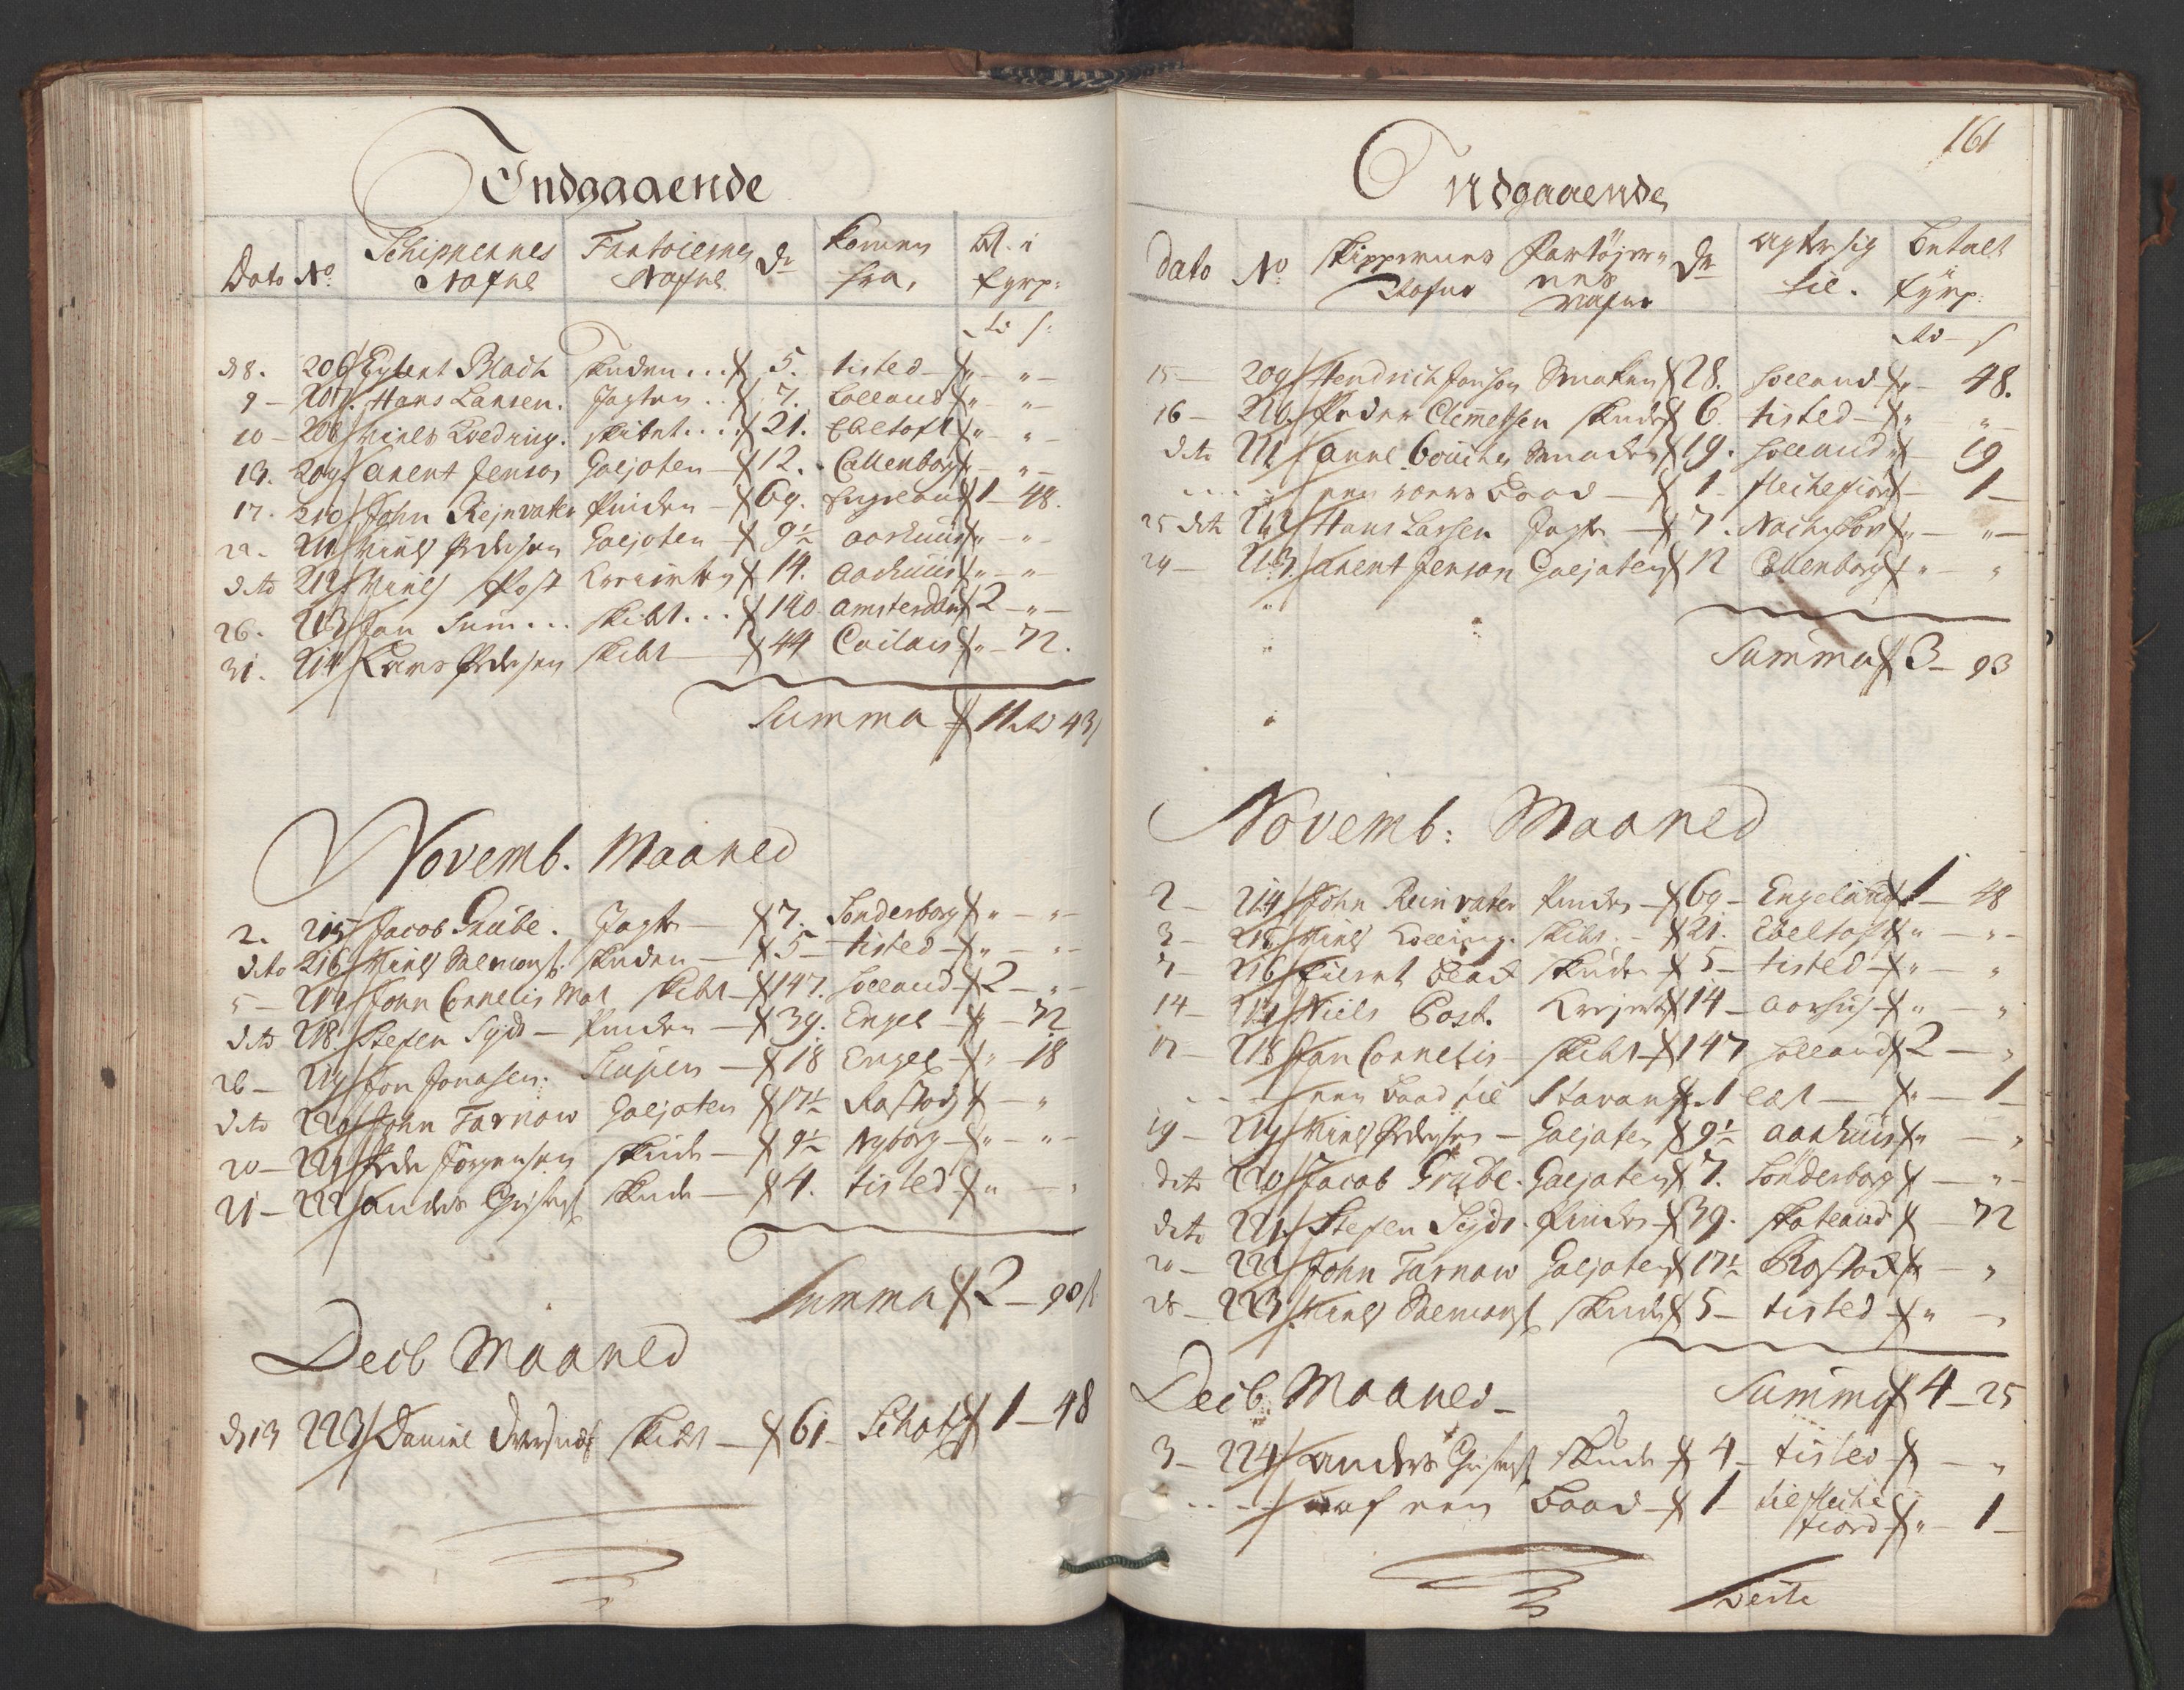 Indgaaende
Dato No. Schippernes Nafne Fartoiernes Nafne Dr. Komen fra, Bl. i fyrp:
d 8. 206 Eylert Blach Skuden 5. tisted
9 - 207. Hans Larsen. Jagten 7. Lolland
10 - 208 Niels Kolding. skibet 21. Ebeltoft
13. 209 arent Jenson Galjoten 12. Callenborg
17. 210 John Rejnvater Pinden 69. Engeland 1 - 48.
22. 211 Niels Pedersen Galjoten 9½ aarhuus
dito 212 Niels Post 14. aarhuus
26. 213 Jan Sum skibt 140. amsterdam 2
31. 214 Lars Pedersen skibt 44 Cailais 72.
Summa 11 43
Novemb. Maaned
2. 215 Jacob Grübe. Jagt 7. Sonderborg
dito 216 Niels Skuden 5 tisted
5 - 217 John Cornelis Mol skibt 147. Holland 2
dito 218. Stefen Sÿds Pinden 39. Engel 72
26 - 219 Jon Jonasen. 18 Engel 18
dito 220 John Tarnow Galjoten 17½ Rostock
20 - 221 Peder Jörgensen skude 9½ Nyborg
21 - 222 anders skude 4. tisted
Summa 2 - 90 s
Decb Maaned
d 13 223 Daniel skibt 61 Schotl 1 - 48
161
Udgaaende
Dato No. Skippernes Nafne Fartøjernes Nafne Dr. agter sig til. Betalt i fÿrp:
15 - 209 Hendrich Jonson Smaken 28. Holland 48.
16 - 210. Peder Clemetsen Skude 6. tisted
dito 211 19. Holland 19
een Baad 1 flechefiord 1
25 dito 212 Hans Larsen Jagt 7.
29 - 213. arent Jenson Galjoten 12 Callenborg
Summa 3 - 93
Novemb: Maaned
2 - 214 John Reinvater Pinden 69 - Engeland 1 - 48
3 - 215 Niels Kolding. skibt 21. Ebeltoft
7 - 216 Eilert Black Skude 5 - tisted
14 - 217 Niels Post. 14 - aarhus
17 - 218 Jan Cornelis skibt 147 Holland 2
een Baad til Stavang. 1 lest 1
19 - 219 Niels Pedersen Galjoten 9½ aarhuus
dito 220 Jacob Grübe. Galjoten 7. Sönderborg
dito 221. Stefen Sÿds. Pinden 39. skotland 72
20 - 222 John Tarnow Galjoten 17½ Rostock
28 - 223. Niels skude 5 - tisted
Summa 4 - 25
Decb. Maaned
3 - 224 anders skude 4 - tisted
af een Baad 1 til fleche fiord 1